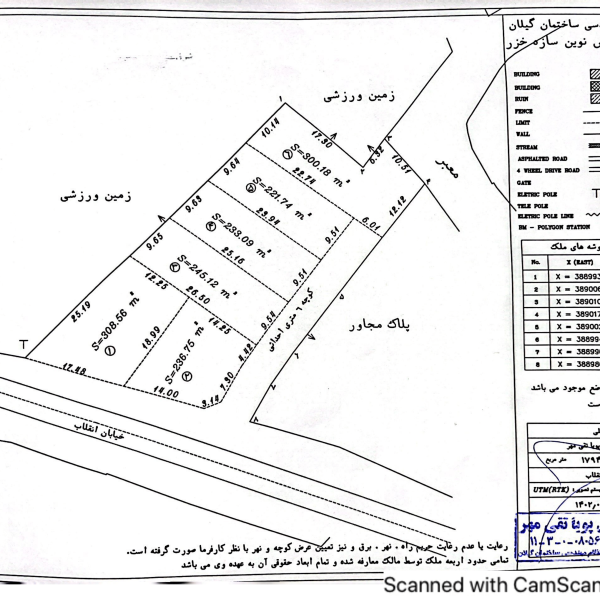 سی ساختمان گیلان
نوین سازه خزر
BUILDING
BUILDING
RUIN
FENCE
LIMIT
WALL
STREAM
ASPHALTED ROAD
4 WHEEL DRIVE ROAD
GATE
ELETRIC POLE
TELE POLE
ELETRIC POLE LINE
BM - POLYGON STATION
زمین ورزشی
1
10.14
17.30
S=300.18 m²
9.64
22.74
6.32
10.51
معبر
زمین ورزشی
S=221.74 m²
9.63
23.94
12.12
6.01
S=233.09 m²
9.65
25.16
9.51
S=245.12 m²
12.25
26.50
9.51
کوچه ٦ متری احداثی
پلاک مجاور
25.19
S=308.56 m²
18.99
14.25
9.54
S=236.75 m²
4.42
17.48
14.00
3.14
7.30
خیابان انقلاب
وشه های ملک
No. X (EAST)
1 X = 38899
2 X = 38900
3 X = 38901
4 X = 38901
5 X = 38900
6 X = 38899
7 X = 38899
8 X = 38898
ضع موجود می باشد
است
پویا تقی مهر
متر مربع ۱۷۹۴
انقلاب
UTM(RTK)
۱۴۰۲٫۰
پویا تقی مهر
۱۱-۳-۰-۰۸۰۵۶
رعایت یا عدم رعایت حریم راه ، نهر ، برق و نیز تعیین عرض کوچه و نهر با نظر کارفرما صورت گرفته است.
تمامی حدود اربعه ملک توسط مالک معارفه شده و تمام ابعاد حقوقی آن به عهده وی می باشد
Scanned with CamScan